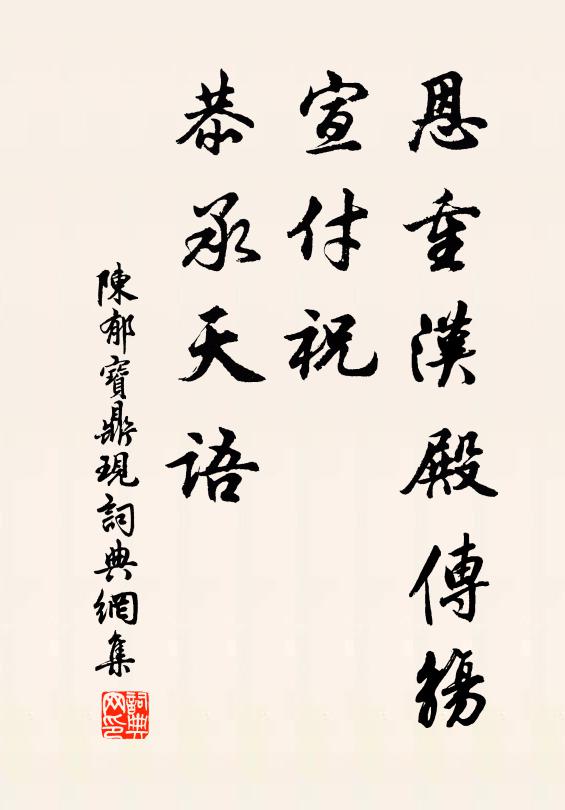 恩重漢殿傳觴
宣付祝
恭承天語
陳郁寶鼎現詞典網集
詞典网印